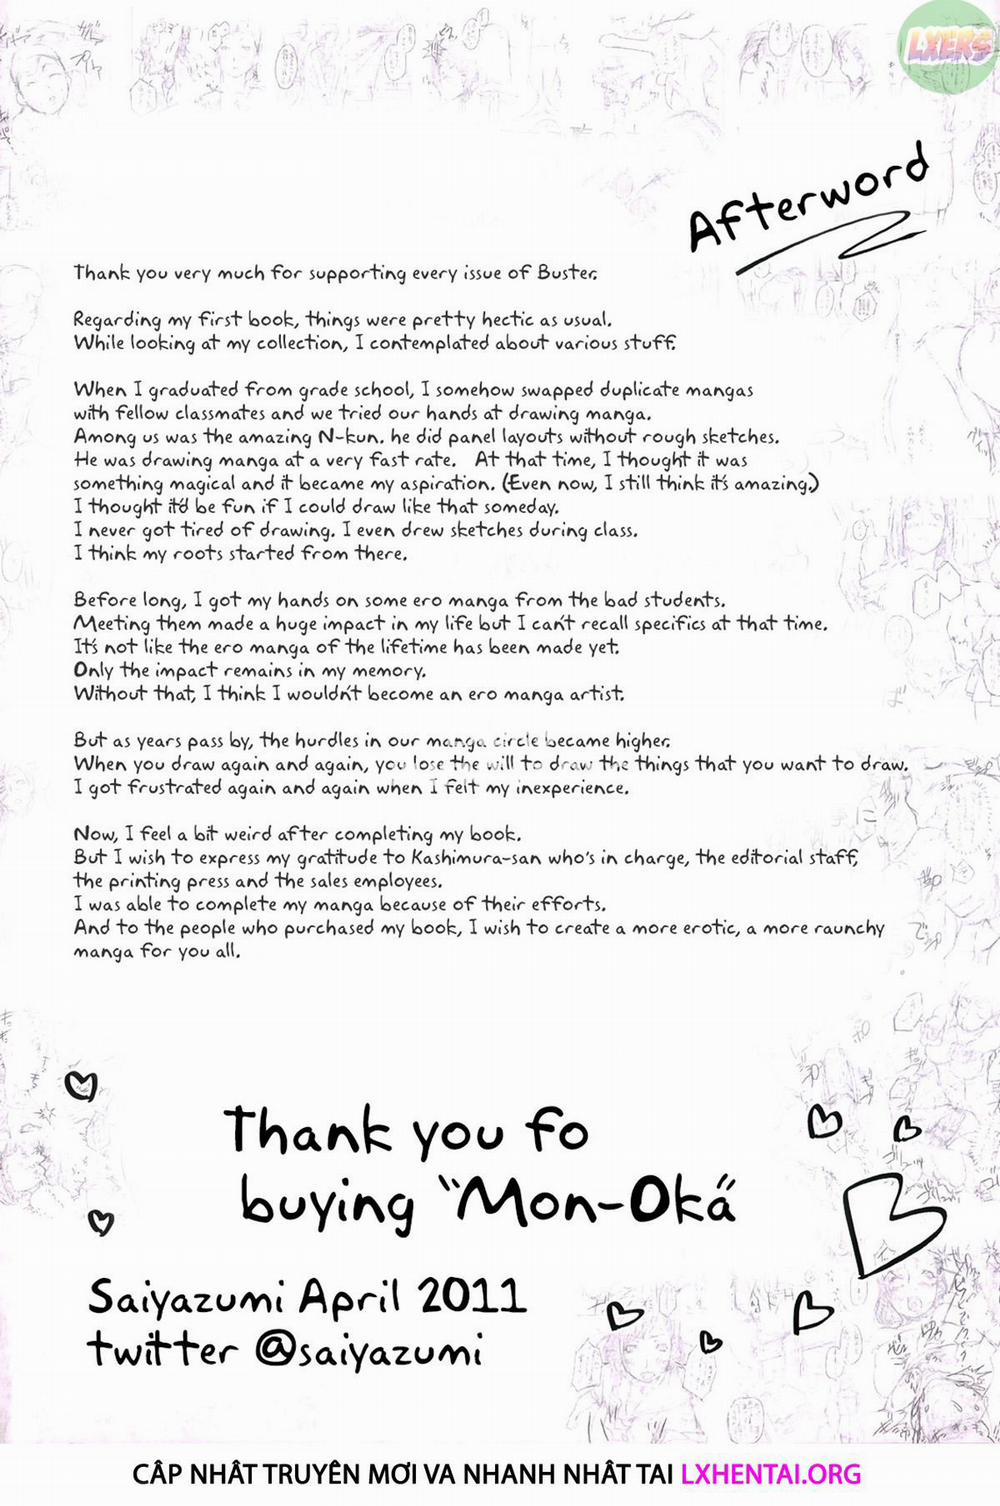 LXERS
Afterword
Thank you very much for supporting every issue of Buster.
Regarding my first book, things were pretty hectic as usual.
While looking at my collection, I contemplated about various stuff.
When I graduated from grade school, I somehow swapped duplicate mangas
with fellow classmates and we tried our hands at drawing manga.
Among us was the amazing N-kun. he did panel layouts without rough sketches.
He was drawing manga at a very fast rate. At that time, I thought it was
something magical and it became my aspiration. (Even now, I still think it's amazing.)
I thought it'd be fun if I could draw like that someday.
I never got tired of drawing. I even drew sketches during class.
I think my roots started from there.
Before long, I got my hands on some ero manga from the bad students.
Meeting them made a huge impact in my life but I can't recall specifics at that time.
It's not like the ero manga of the lifetime has been made yet.
Only the impact remains in my memory.
Without that, I think I wouldn't become an ero manga artist.
But as years pass by, the hurdles in our manga circle became higher.
When you draw again and again, you lose the will to draw the things that you want to draw.
I got frustrated again and again when I felt my inexperience.
Now, I feel a bit weird after completing my book.
But I wish to express my gratitude to Kashimura-san who's in charge, the editorial staff,
the printing press and the sales employees.
I was able to complete my manga because of their efforts.
And to the people who purchased my book, I wish to create a more erotic, a more raunchy
manga for you all.
Thank you fo
buying "Mon-Oka"
Saiyazumi April 2011
twitter @saiyazumi
CẬP NHẬT TRUYỆN MỚI VA NHANH NHẤT TAI LXHENTAI.ORG